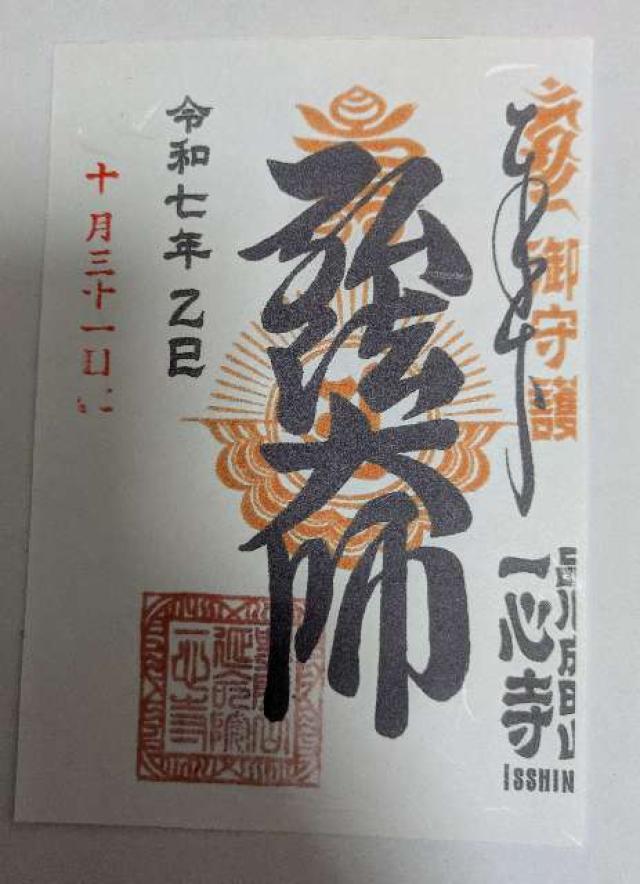 御守護
奉拝
品川成田山
一心寺
ISSHIN
弘法大師
令和七年乙巳
十月三十一日
一心寺